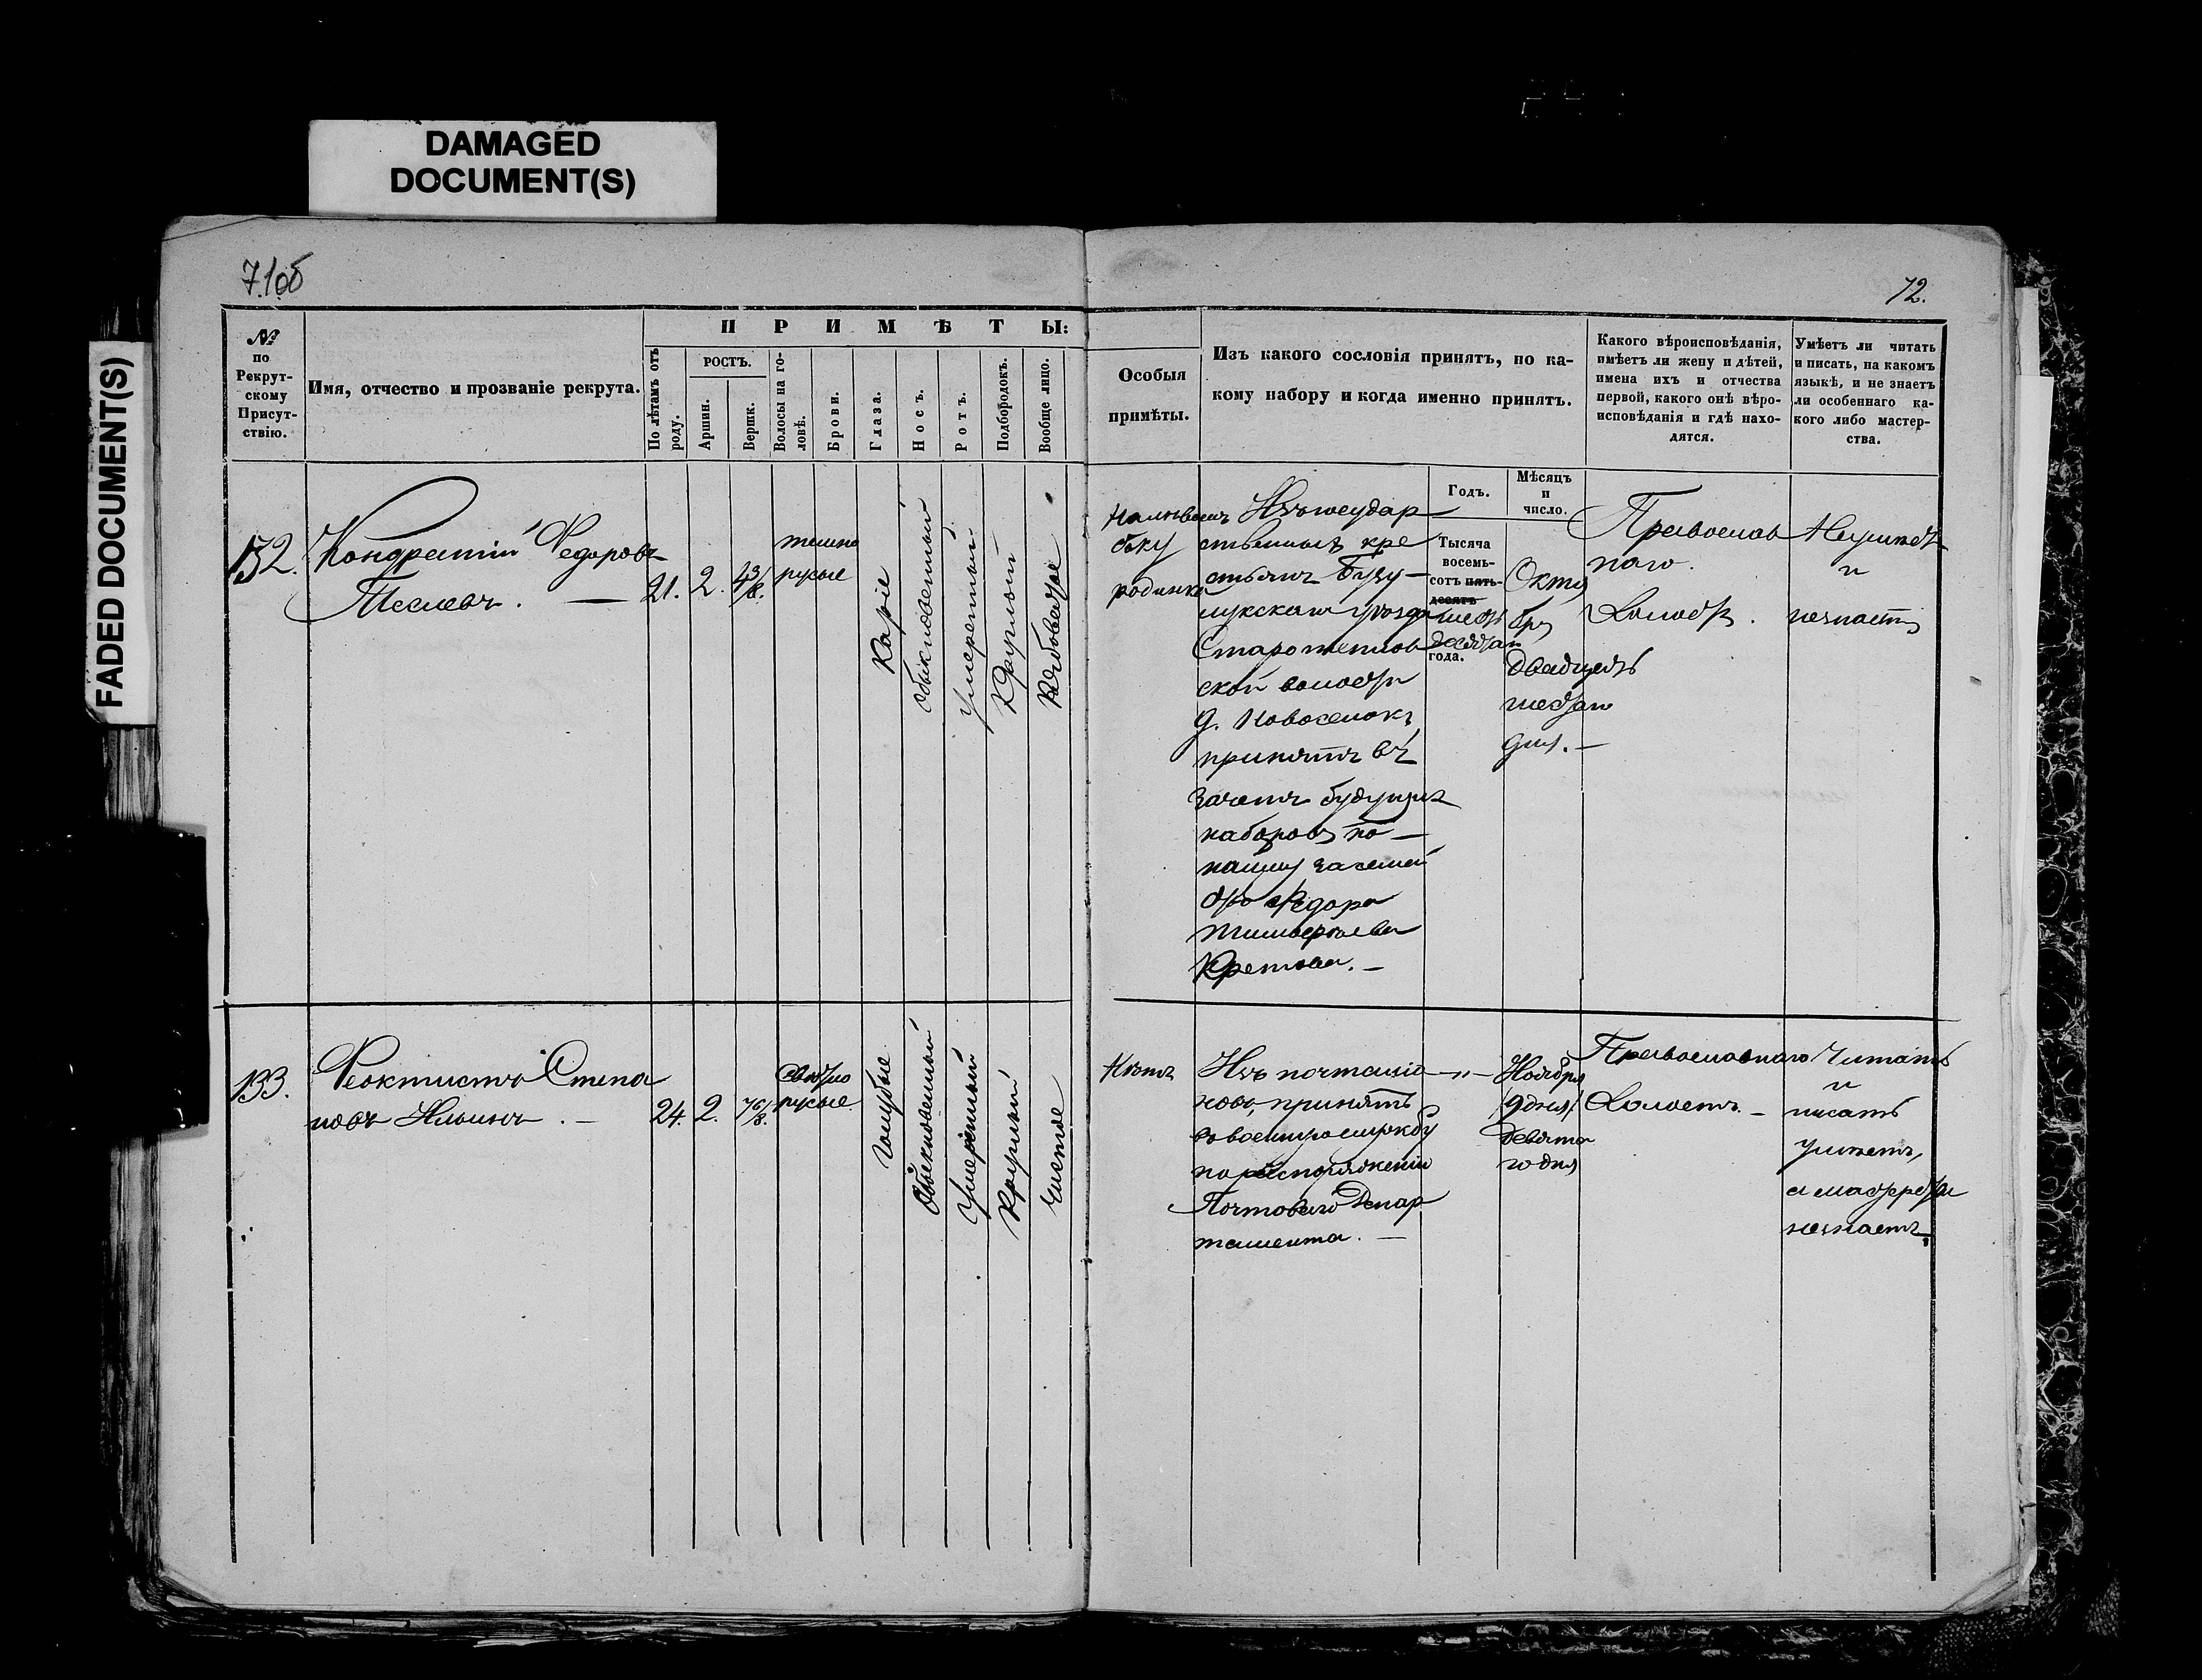 DAMAGED
DOCUMENT(S)
FADED DOCUMENT(S)
71об
72.
№
по
Рекрут-
скому
Присут-
ствію.
Имя, отчество и прозваніе рекрута.
ПРИМѢТЫ:
По лѣтамъ отъ
роду.
РОСТЪ.
Аршин.
Вершк.
Волосы на го-
ловѣ.
Брови.
Глаза.
Носъ.
Ротъ.
Подбородокъ.
Вообще лицо.
Особыя
примѣты.
Изъ какого сословія принятъ, по ка-
кому набору и когда именно принятъ.
Какого вѣроисповѣданія,
имѣетъ ли жену и дѣтей,
имена ихъ и отчества
первой, какого онѣ вѣро-
исповѣданія и гдѣ нахо-
дятся.
Умѣетъ ли читать
и писать, на какомъ
языкѣ, и не знаетъ
ли особеннаго ка-
кого либо мастер-
ства.
132.
Кондратій Федоровъ
21.
2.
4 3/8.
темно
русые
Каріе
обыкновенный
умеренный
Круглый
Рябоватое
На лѣвомъ
боку
родинка
Изъ государ
ственныхъ кре
стьянъ Бузу—
лукскаго уѣзда
волости
д. Новоселокъ
принятъ въ
зачетъ будущихъ
наборовъ по—
найму за семей
ство Федора
Годъ.
Тысяча
восемь-
сотъ пять-
десятъ
шесть
десятаго
года.
Мѣсяцъ
и
число.
Октя
бря
двадцать
шестаго
дня.—
Православ
наго.
Холостъ.
Неумѣетъ
и
незнаетъ
133.
Феоктистъ Степа
новъ Ильинъ.—
24.
2.
7 6/8.
светло
русые.
голубые
Обыкновенный
Умеренный
Круглый
чистое
Нѣтъ
Изъ почталіо
новъ, принятъ
въ военную службу
по распоряженію
Почтоваго Депар
тамента.—
—"—
Ноября
9 дня/
Девята
го дня
Православнаго
Холостъ.—
Читать
и
писать
умѣетъ,
а мастерства
незнаетъ.